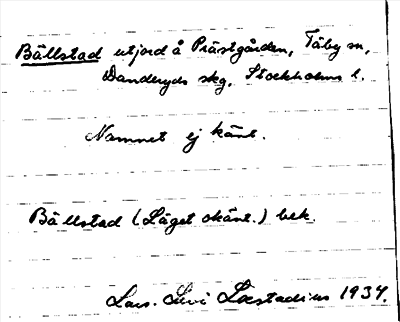 Bällstad utjord å Prästgården, Täby sn,
Danderyds skg, Stockholms l.
Namnet ej känt.
Bällstad (Läget okänt.) bek.
Lars. Levi Læstadius 1937.